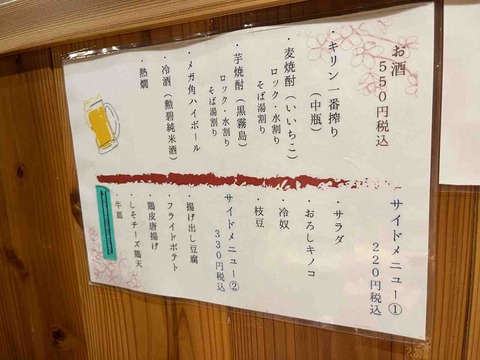 お酒
550円税込
・キリン一番搾り
（中瓶）
・麦焼酎（いいちこ）
ロック・水割り
そば湯割り
・芋焼酎（黒霧島）
ロック・水割り
そば湯割り
・メガ角ハイボール
・冷酒（勲碧純米酒）
・熱燗
サイドメニュー①
220円税込
・サラダ
・おろしキノコ
・冷奴
・枝豆
サイドメニュー②
330円税込
・揚げ出し豆腐
・フライドポテト
・鶏皮唐揚げ
・しそチーズ鶏天
・牛皿